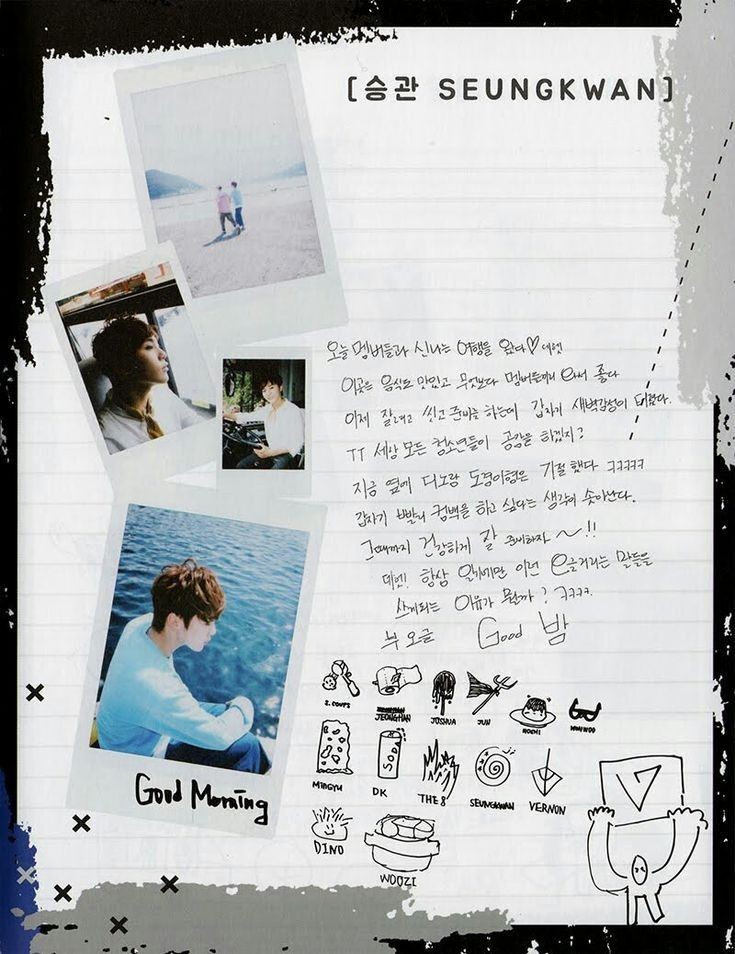 [승관 SEUNGKWAN]
오늘 멤버들과 신나는 여행을 왔다♡ 데헷
이곳은 음식도 맛있고 무엇보다 멤버들끼리 와서 좋다
이제 잘려고 씻고 준비를 하는데 갑자기 새벽감성이 터졌다.
TT 세상 모든 청소년들이 공감을 하겠지?
지금 옆에 디노랑 도겸이형은 기절했다 ㅋㅋㅋㅋㅋ
갑자기 빨리 컴백을 하고 싶다는 생각이 솟아난다.
그때까지 건강하게 잘 준비하자 ~!!
데헷! 항상 일기에만 이런 오글거리는 말들을
쓰게되는 이유가 뭘까? ㅋㅋㅋㅋ.
부 오글 Good 밤
S.COUPS
JEONGHAN
JOSHUA
JUN
HOSHI
WONWOO
SODA
MINGYU
DK
THE 8
SEUNGKWAN
VERNON
DINO
WOOZI
Good Morning